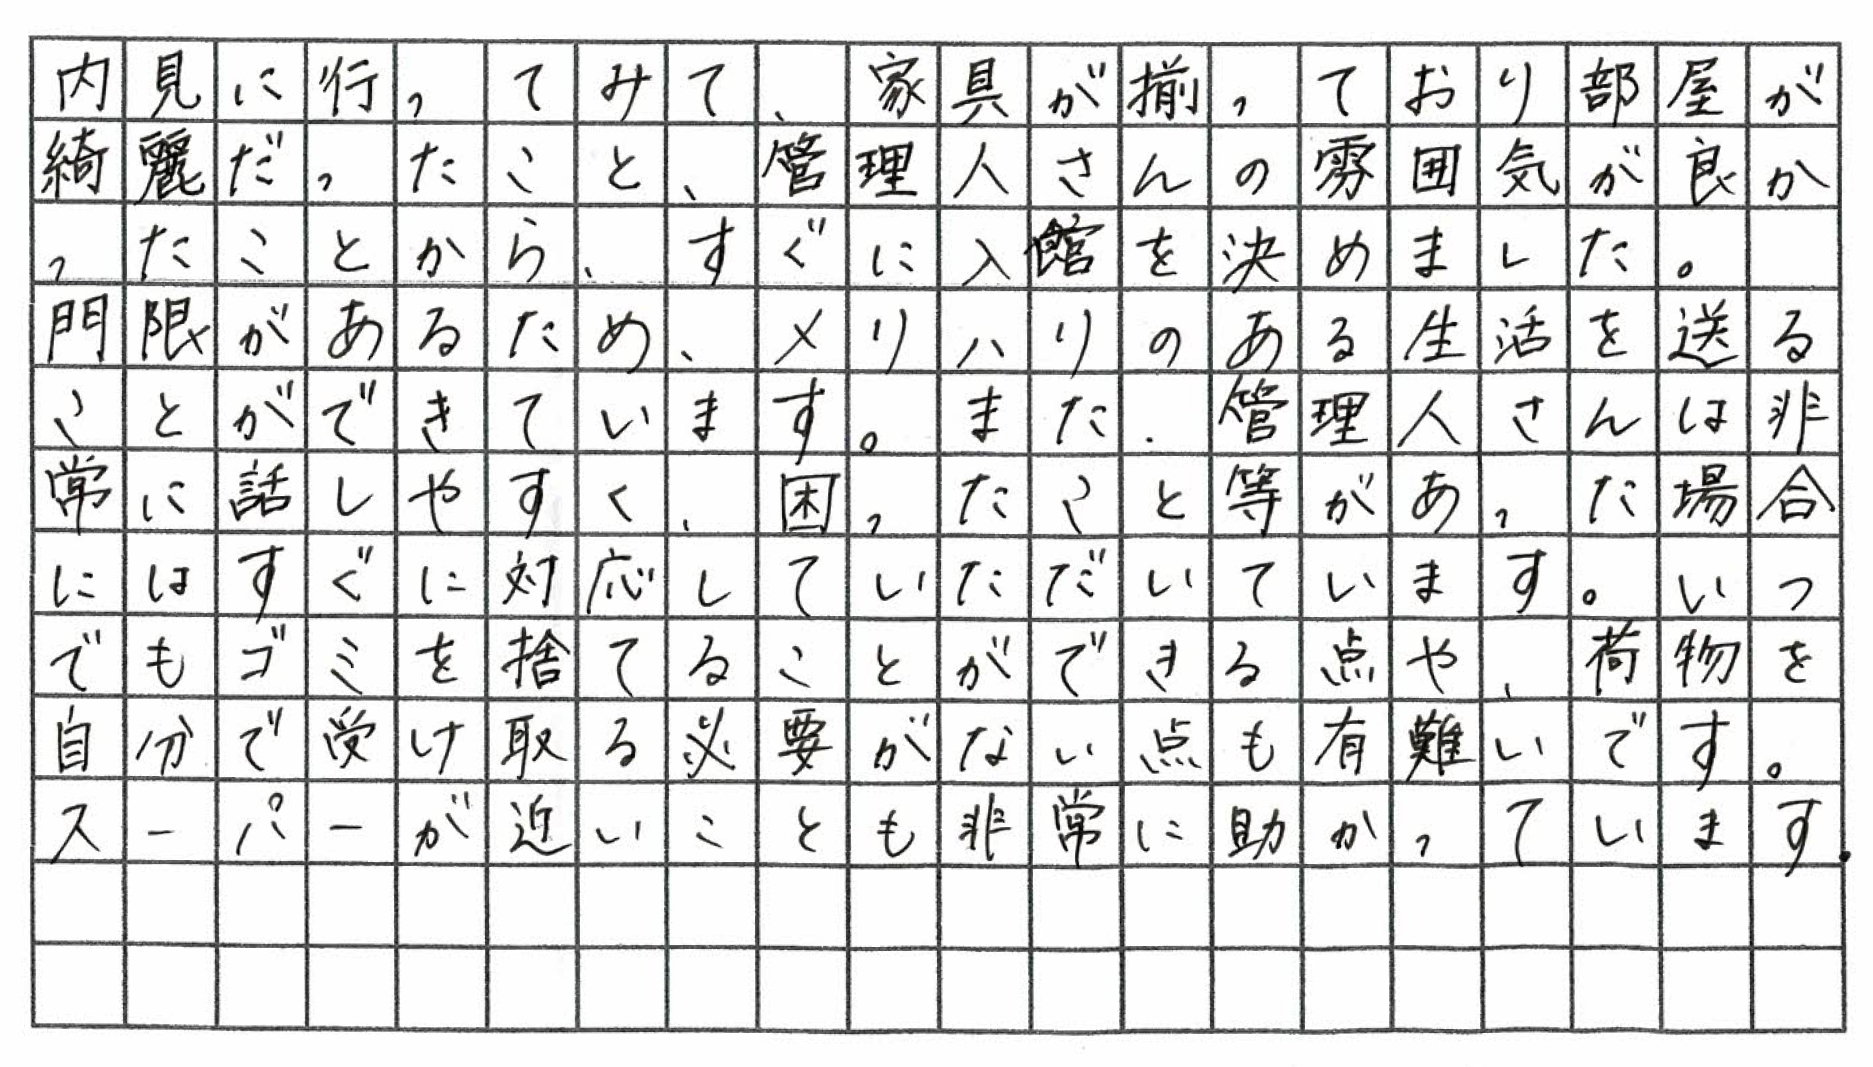 内見に行ってみて、家具が揃っており部屋が
綺麗だったこと、管理人さんの雰囲気が良か
ったことから、すぐに入館を決めました。
門限があるため、メリハリのある生活を送る
ことができています。また、管理人さんは非
常に話しやすく、困ったこと等があった場合
にはすぐに対応していただいています。いつ
でもゴミを捨てることができる点や、荷物を
自分で受け取る必要がない点も有難いです。
スーパーが近いことも非常に助かっています。